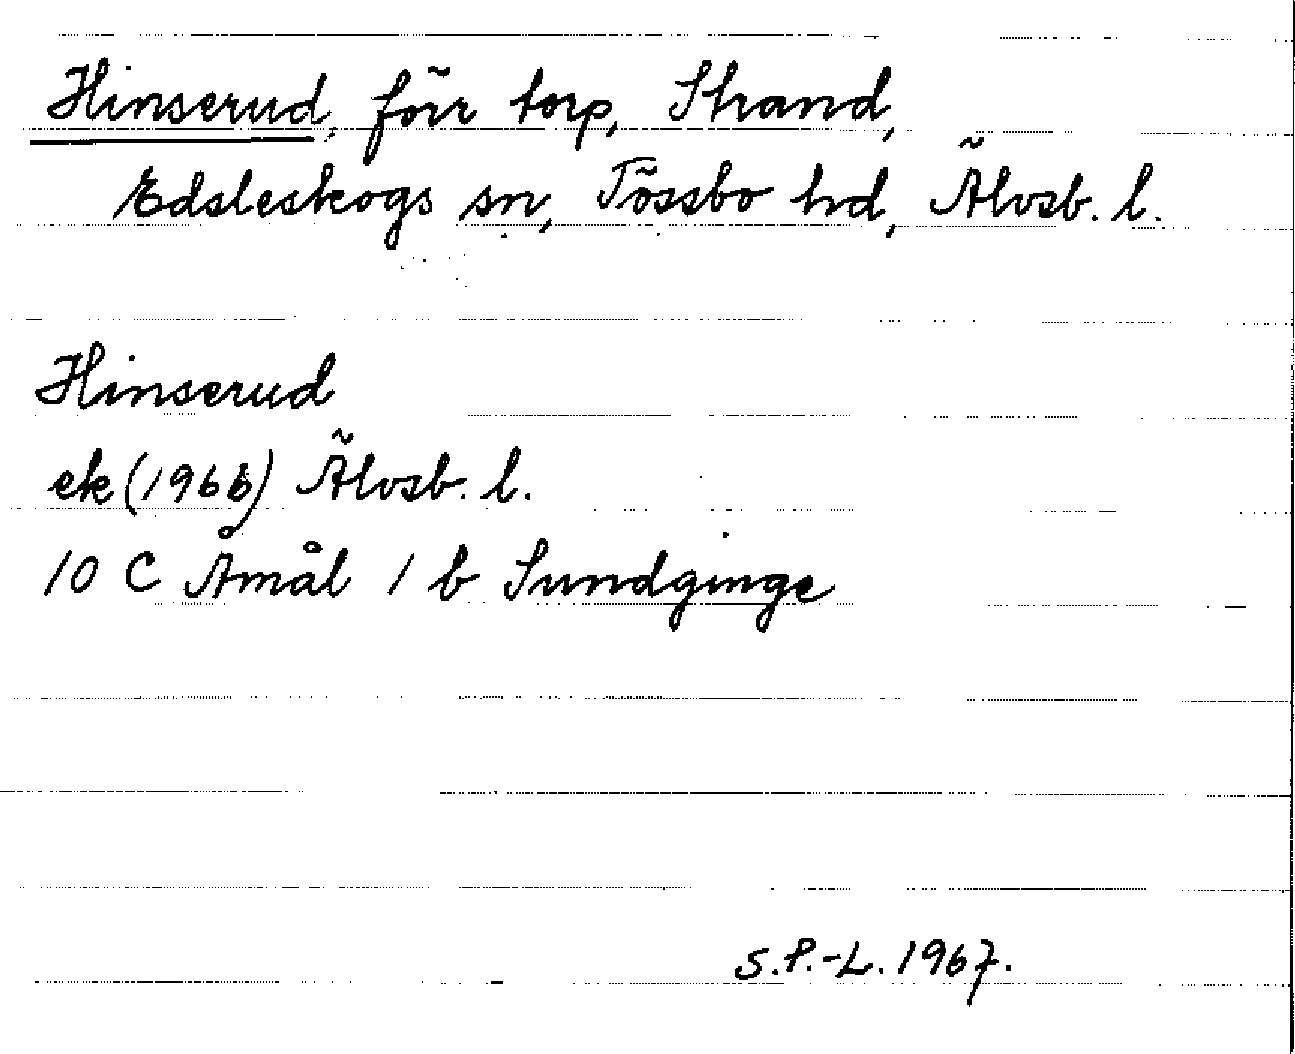 Hinserud, förr torp, Strand,
Edsleskogs sn, Tössbo hd, Älvsb. l.
Hinserud
ek (1966) Älvsb. l.
10 C Åmål 1 b Sundginge
S.P.-L. 1967.